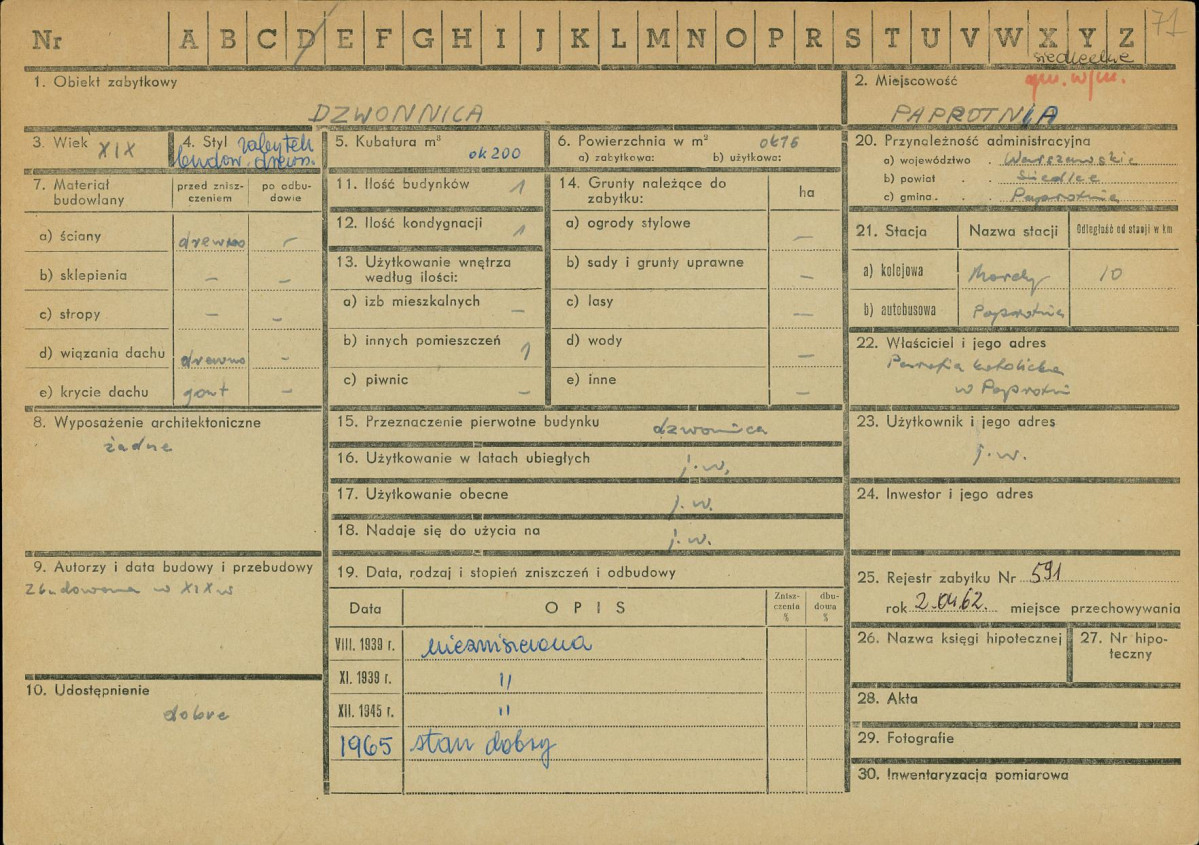 Nr A B C D E F G H I J K L M N O P R S T U V W X Y Z 71
siedleckie
1. Obiekt zabytkowy
DZWONNICA
2. Miejscowość gm. w/m.
PAPROTNIA
3. Wiek XIX
4. Styl zabytek
budow. drewn.
5. Kubatura m³
ok 200
6. Powierzchnia w m² ok 16
a) zabytkowa: b) użytkowa:
20. Przynależność administracyjna
a) województwo . Warszawskie
b) powiat . . Siedlce
c) gmina . . Paprotnia
7. Materiał budowlany
przed zniszczeniem
po odbudowie
a) ściany drewno –
b) sklepienia – –
c) stropy – –
d) wiązania dachu drewno –
e) krycie dachu gont –
11. Ilość budynków 1
12. Ilość kondygnacji 1
13. Użytkowanie wnętrza
według ilości:
a) izb mieszkalnych –
b) innych pomieszczeń 1
c) piwnic –
14. Grunty należące do
zabytku: ha
a) ogrody stylowe –
b) sady i grunty uprawne –
c) lasy –
d) wody –
e) inne –
21. Stacja Nazwa stacji Odległość od stacji w km
a) kolejowa Mordy 10
b) autobusowa Paprotnia
22. Właściciel i jego adres
Parafia katolicka
w Paprotni
8. Wyposażenie architektoniczne
żadne
15. Przeznaczenie pierwotne budynku dzwonnica
16. Użytkowanie w latach ubiegłych j.w.
17. Użytkowanie obecne j.w.
18. Nadaje się do użycia na j.w.
23. Użytkownik i jego adres
j.w.
24. Inwestor i jego adres
9. Autorzy i data budowy i przebudowy
Zbudowana w XIX w
10. Udostępnienie
dobre
19. Data, rodzaj i stopień zniszczeń i odbudowy
Data OPIS Zniszczenia % dbudowa %
VIII. 1939 r. niezniszczona
XI. 1939 r. "
XII. 1945 r. "
1965 stan dobry
25. Rejestr zabytku Nr 591
rok 2.04.62. miejsce przechowywania
26. Nazwa księgi hipotecznej
27. Nr hipoteczny
28. Akta
29. Fotografie
30. Inwentaryzacja pomiarowa